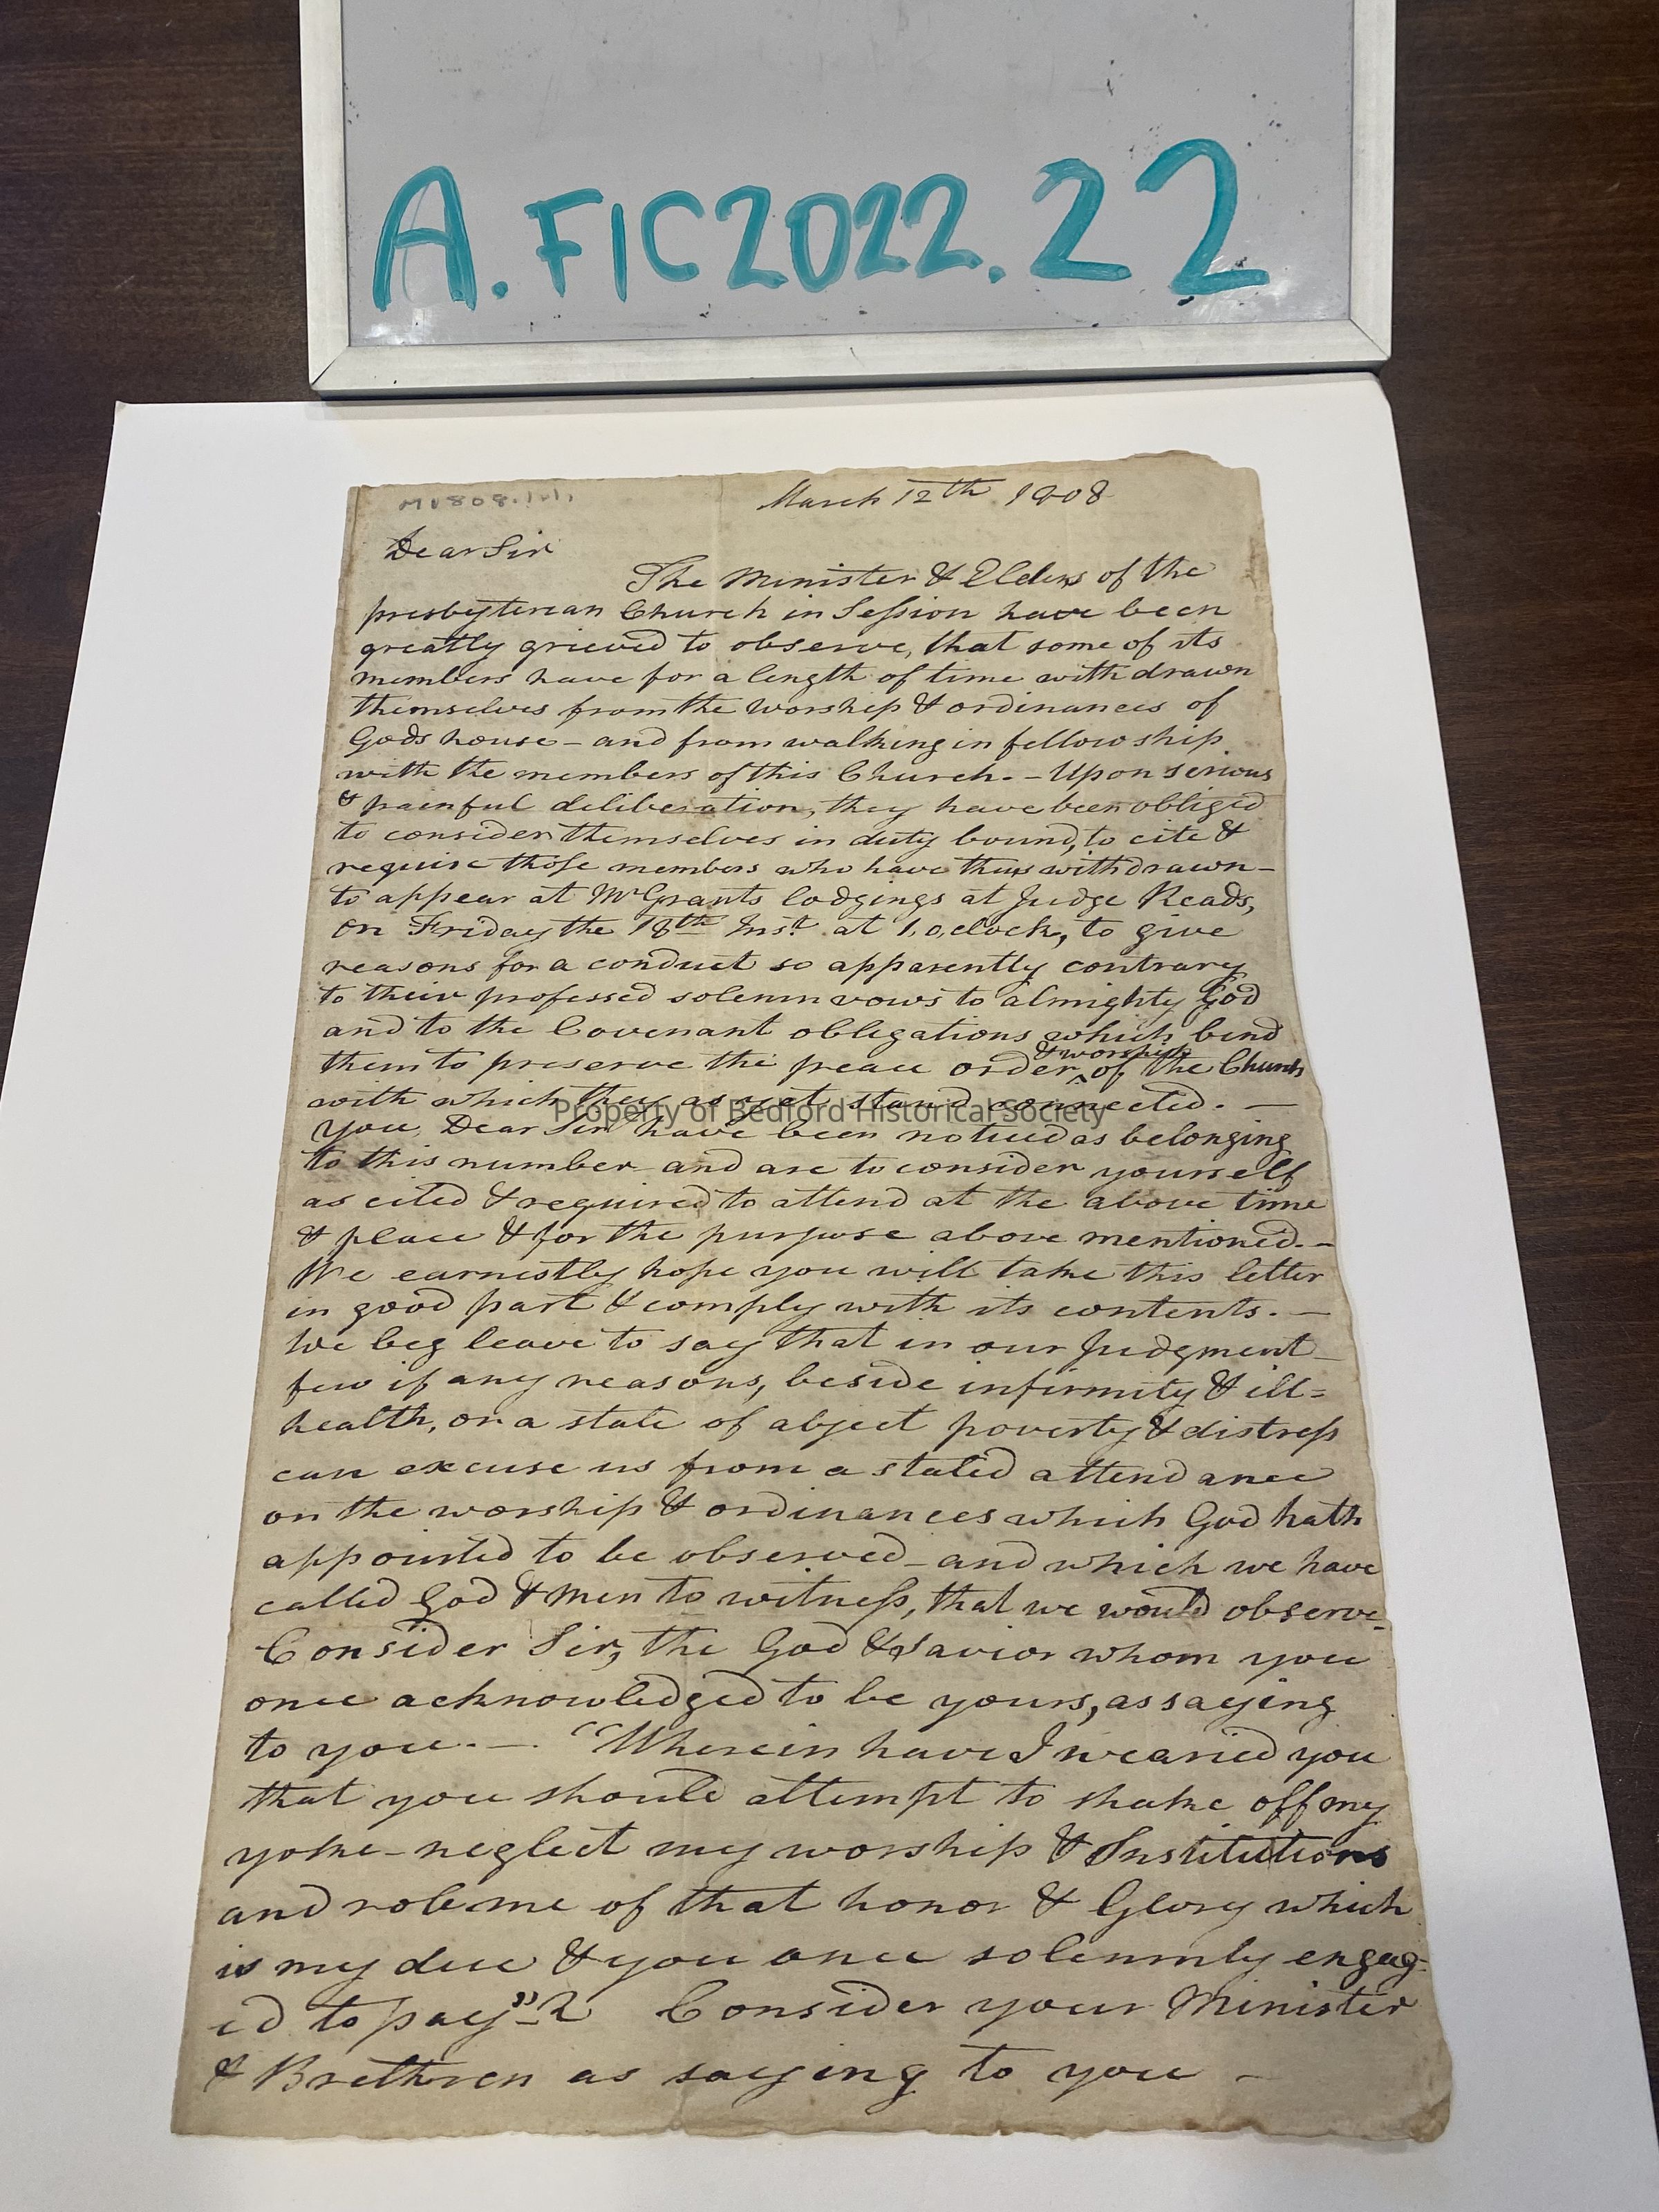 A.FIC2022.22
March 12th 1808
Dear Sir
The Minister & Elders of the
presbyterean Church in Session have been
greatly grieved to observe, that some of its
members have for a length of time withdrawn
themselves from the worship & ordinances of
Gods house – and from walking in fellowship
with the members of this Church. – Upon serious
& painful deliberation, they have been obliged
to consider themselves in duty bound, to cite &
require those members who have thus withdrawn –
to appear at Mr Grants lodgings at Judge Reads,
on Friday the 18th Inst. at 1, o,clock, to give
reasons for a conduct so apparently contrary
to their professed solemn vows to almighty God
and to the Covenant obligations which bind
them to preserve the peace order ‸ & worship of the Church
with which they as yet stand connected. –
Property of Bedford Historical Society
you, Dear Sir have been noticed as belonging
to this number and are to consider yourself
as cited & required to attend at the above time
& place & for the purpose above mentioned. –
We earnestly hope you will take this letter
in good part & comply with its contents. –
We beg leave to say that in our Judgment –
few if any reasons, beside infirmity & ill=
health, or a state of abject poverty & distress
can excuse us from a stated attendance
on the worship & ordinances which God hath
appointed to be observed – and which we have
called God & men to witness, that we would observe –
Consider Sir, the God & Savior whom you
once acknowledged to be yours, as saying
to you. – . "Wherein have I wearied you
that you should attempt to shake off my
yoke – neglect my worship & Institutions
and rob me of that honor & Glory which
is my due & you once solemnly engag-
ed to pay" – ? Consider your Minister
& Brethren as saying to you –